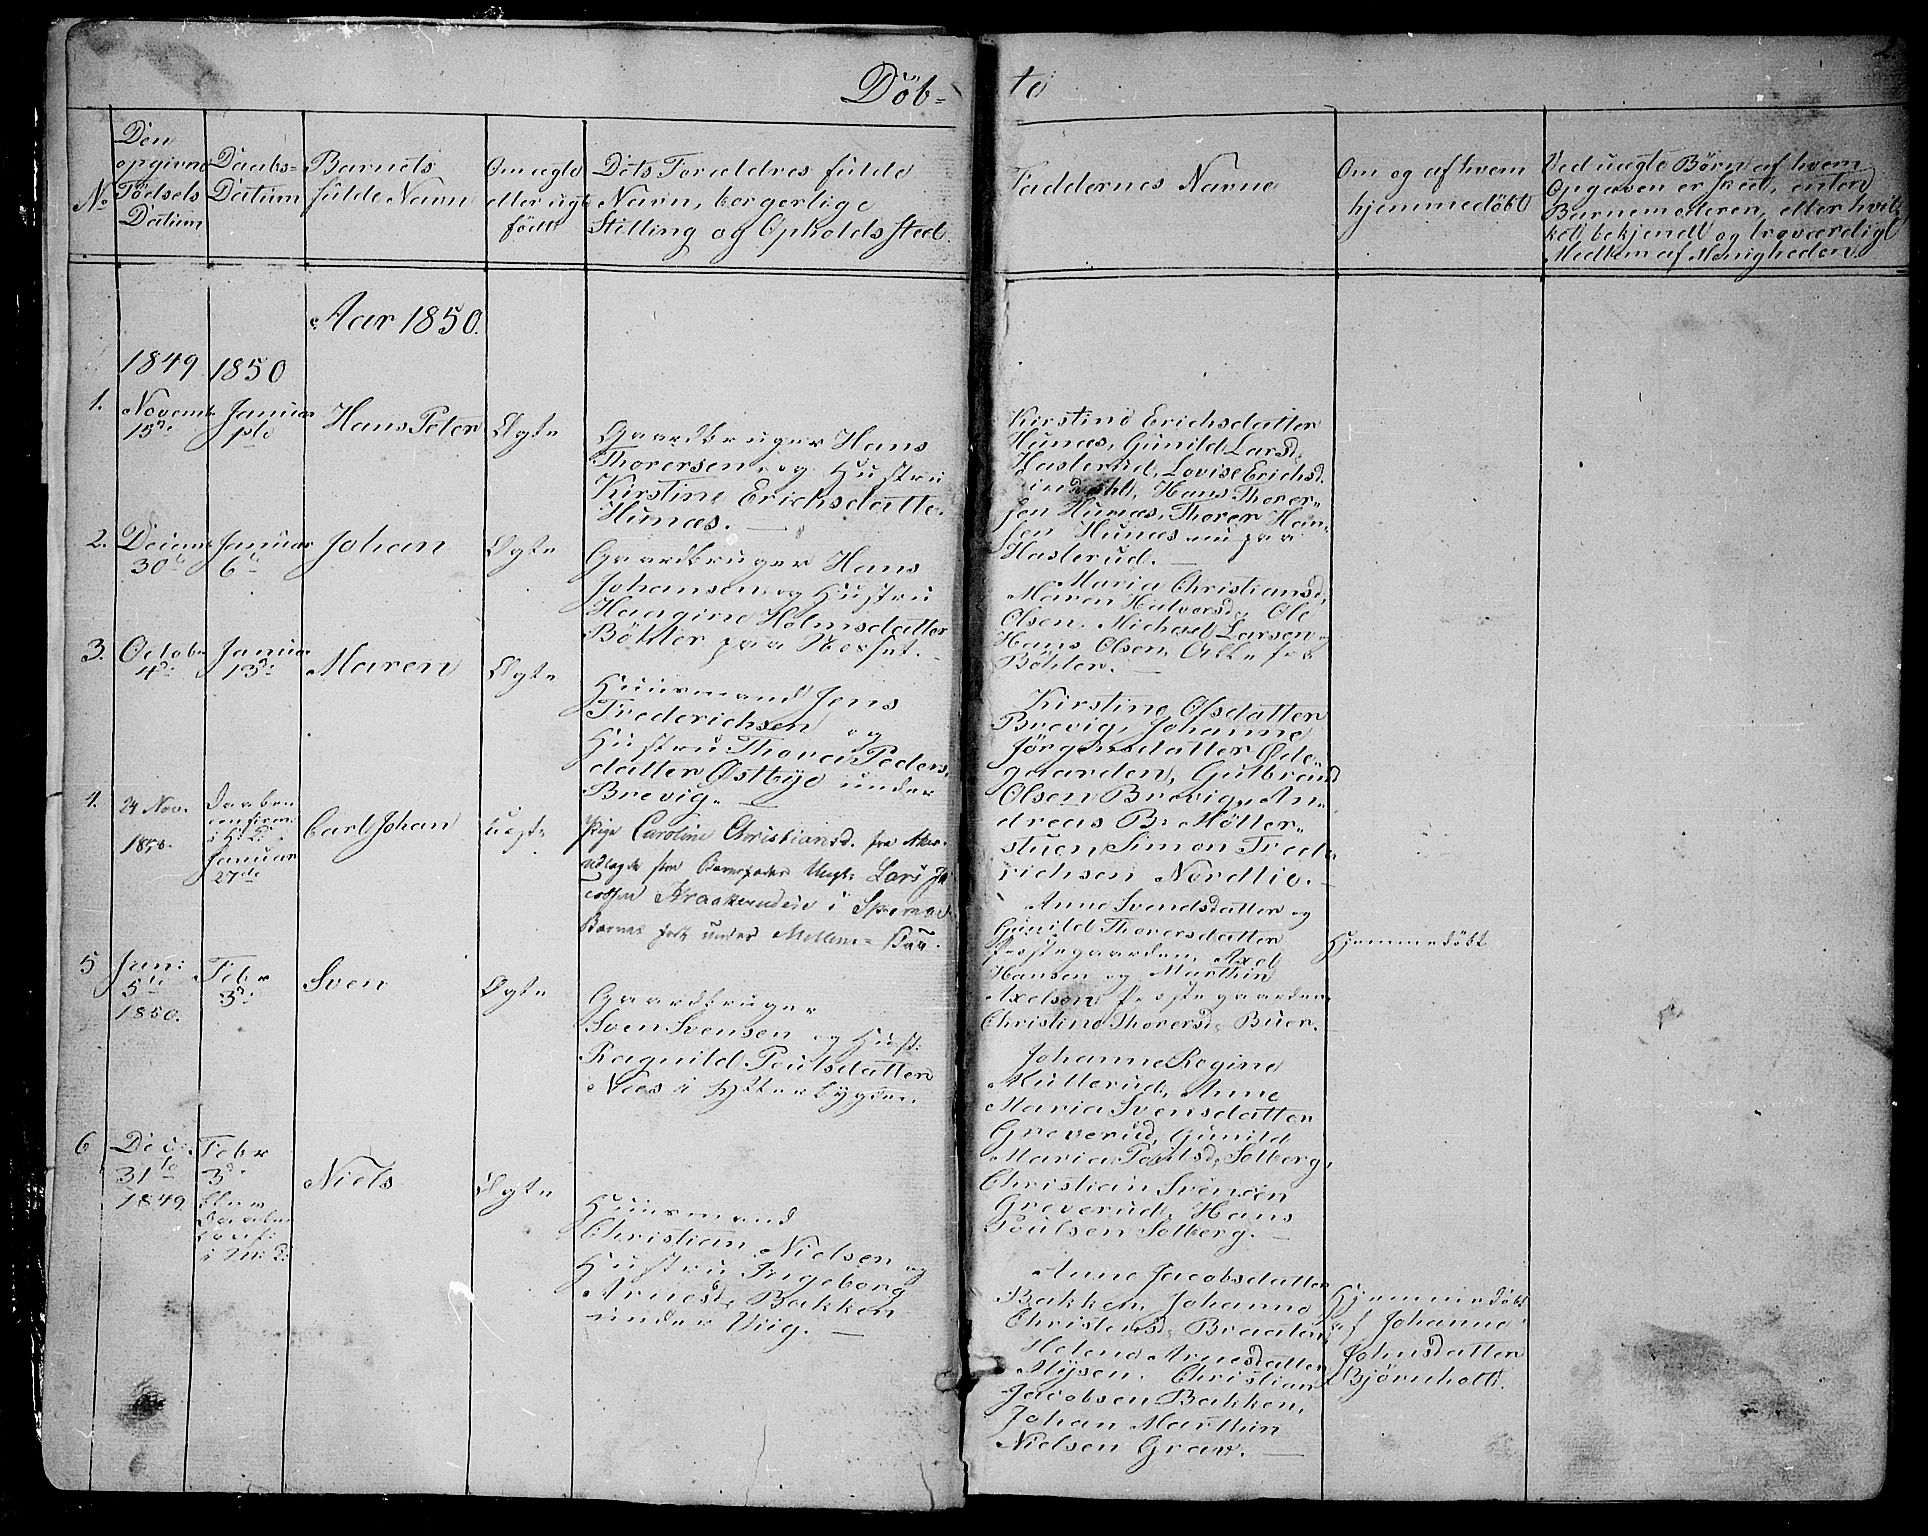 Döb-
te
2
No
Den
opgivne
Födsels
Datum
Daabs-
Datum
Barnets
fulde Navn
Om ægte
eller uægte
födt
Dets Foræeldres fulde
Navn, borgerlige
Stilling og Opholdssted.
Faddernes Navne
Om og af hvem
hjemmedöbt
Ved uægte Börn af hvem
Opgaven er skeet, enten
Barnemoderen, eller hvil-
ket bekjendt og troværdigt
Medlem af Menigheden.
Aar 1850.
1849
1850
1.
Novemb
15de
Januar
1ste
Hans Peter
Ægte
Gaardbruger Hans
Thorersen og Hustru
Kirstine Erichsdatte
Hunæs. —
Kirstine Erichsdatter
Hunæs, Gunild Larsd.
Haslerud, Lovise Erichsd.
Hans Thorer-
sen Hunæs, Thorer Han-
sen Hunæs nu paa
Haslerud. —
2.
Decemb
30te
Januar
6te
Johan
Ægte
Gaardbruger Hans
Johansen og Hustru
Haagine Holmsdatter
Böhler paa Nesset. —
Maria Christiansd.
Maren Halvorsd. Ole
Olsen, Michael Larsen og
Hans Olsen, Alle fra
Böhler. —
3.
Octobr
4de
Januar
13de
Maren
Ægte
Huusmand Jens
Frederichsen og
Hustru Thora Peders-
datter Østbye under
Brevig. —
Kirstine Olsdatter
Brevig, Johanne
Jörgensdatter Øde-
gaarden, Gulbrand
Olsen Brevig, An-
dreas B. Möller-
stuen Simon Frede
richsen Nordlie. —
4.
24 Nov.
Daaben
confirm.
i H. K.
Januar
27de
Carl Johan
uægte
Pige Caroline Christiansd. fra Aker
udlagde som Barnefader Ungk. Lars Ja
cobsen Kraakerudeie i
Barnet født under
Anne Svendsdatter og
Gunild Thorersdatter
Prestegaarden, Axel
Hansen og Marthin
Axelsen Prestegaarden
Christine Thorersd. Buer.
Hjemmedöbt
5
Jan:
5te
1850.
Febr
3de
Sven
Ægte
Gaardbruger
Sven Svensen og Hust.
Ragnild Poulsdatter
Næs i Ytterbygden.
Johanne Regine
Mullerud, Anne
Maria Svensdatter
Greverud, Gunild
Maria Poulsd. Solberg,
Christian Svensen
Greverud, Hans
Poulsen Solberg. —
6
Dec:
31te
1849
Febr
3de
blev
Daaben
conf:
Niels
Ægte
Huusmand
Christian Nielsen og
Hustru Ingeborg
Arnesd. Bakken
under Viig. —
Anne Jacobsdatter
Bakken, Johanne
Christensd. Braaten,
Helene Arnesdatter
Mysen. Christian
Jacobsen Bakken,
Johan Marthin
Nielsen Grav. —
Hjemmedöbt
af Johanne
Johnsdatter
Björnholt.